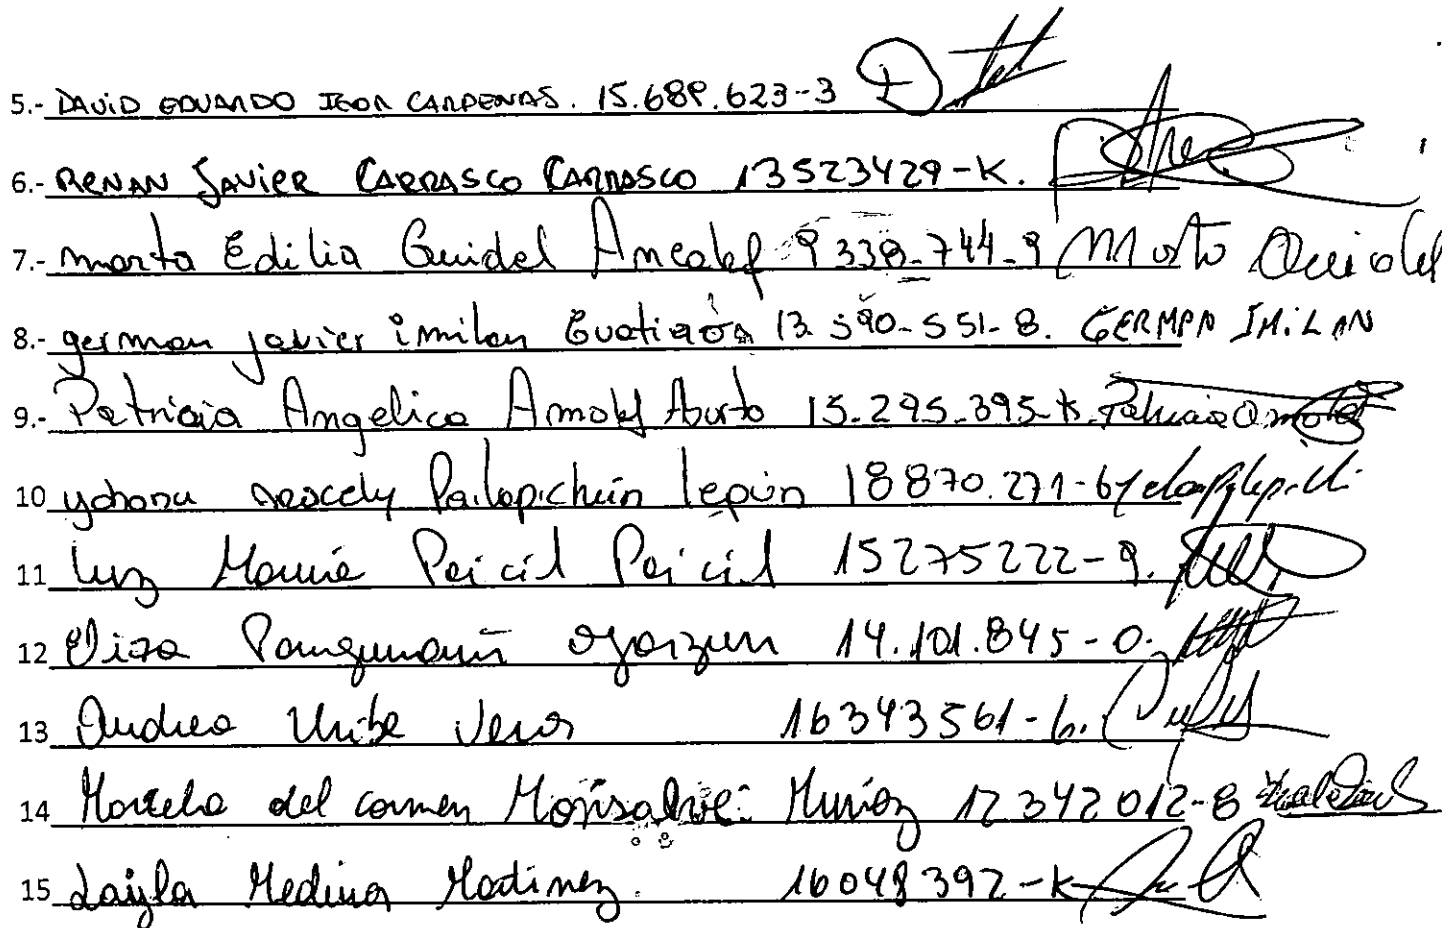 5.- DAViD EDUARDO IGOR CARDENAS. 15.689.623-3
6.- RENAN JAViER CARRASCO CARRASCO 13523429-K.
7.- marta Edilia Guidel Ancalef 9338-744-9 Marta Quidel
8.- german javier imilan 13 590-551-8. GERMAN IMiLAN
9.- Patricia Angelica Amolef Aurto 15-295-395-K. Patricia Amolef
10 yohana Pailapichún lepin 18870.271-6
11 Luz Maria Peicil Peicil 15275222-9.
12 Eliza Panguinamún oyarzun 14.101.845-0.
13 Andrea Uribe Vera 16343561-6.
14 Marcela del carmen Monsalve Muñoz 12342012-8
15 Layla Medina Martinez. 16048392-K